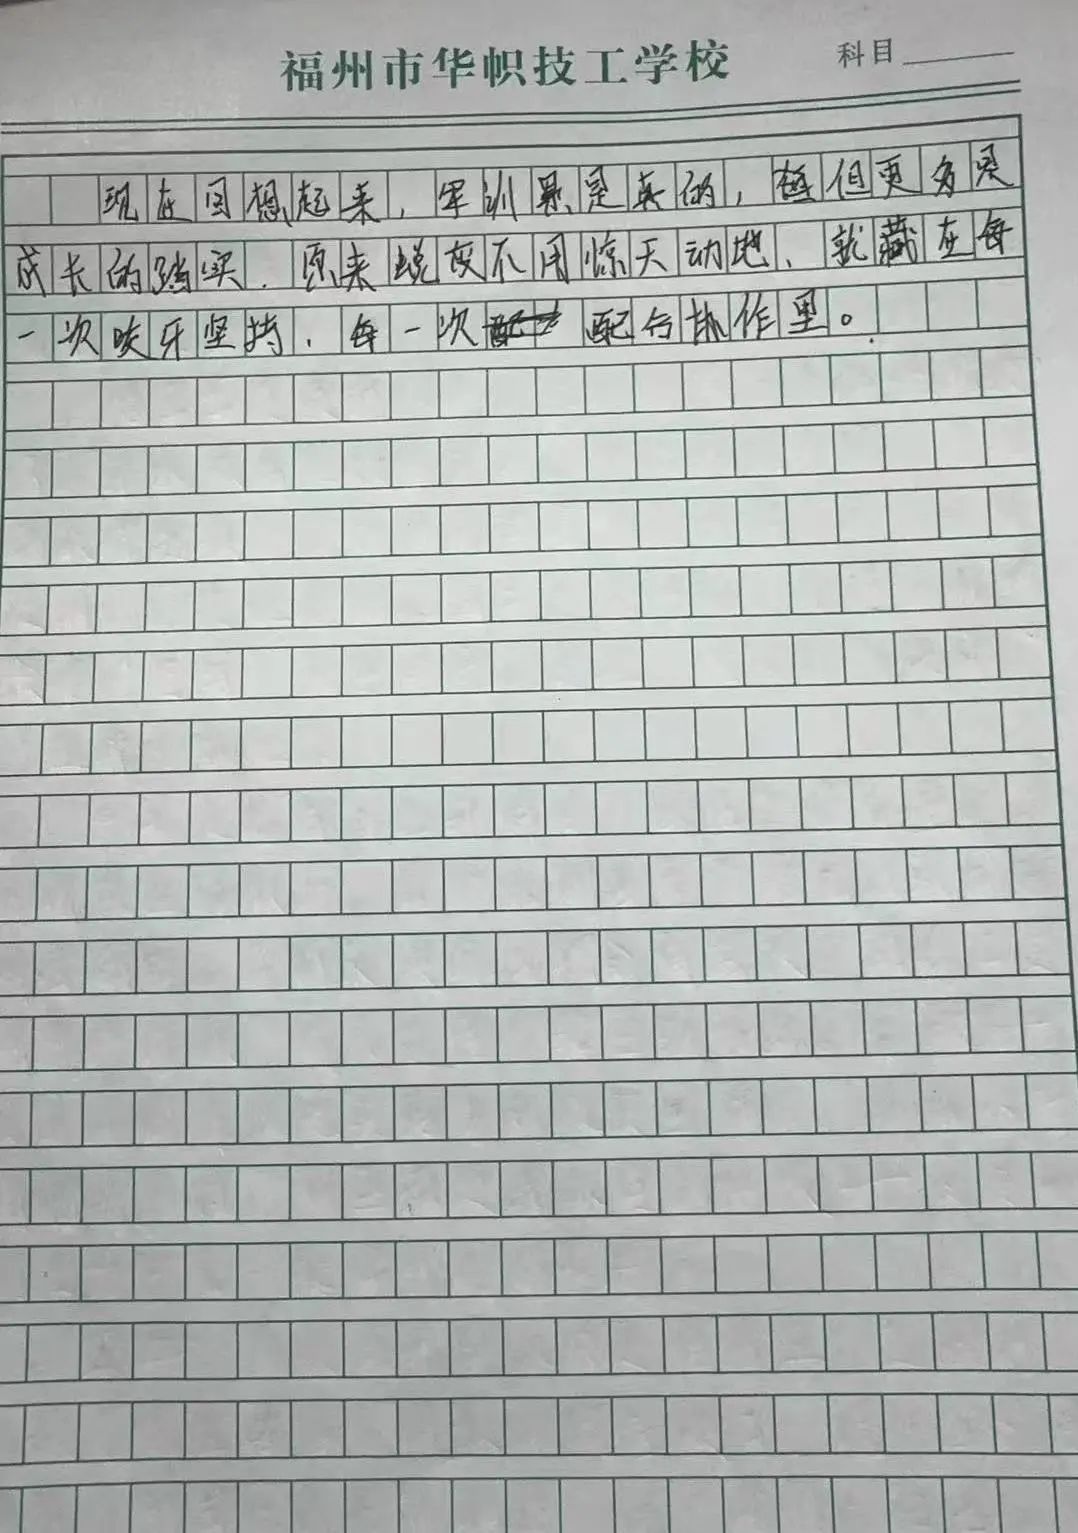 福州市华帜技工学校
科目
现在回想起来,军训累是真的,但更多是
成长的踏实.原来蜕变不用惊天动地、就藏在每
一次咬牙坚持.每一次配合协作里。